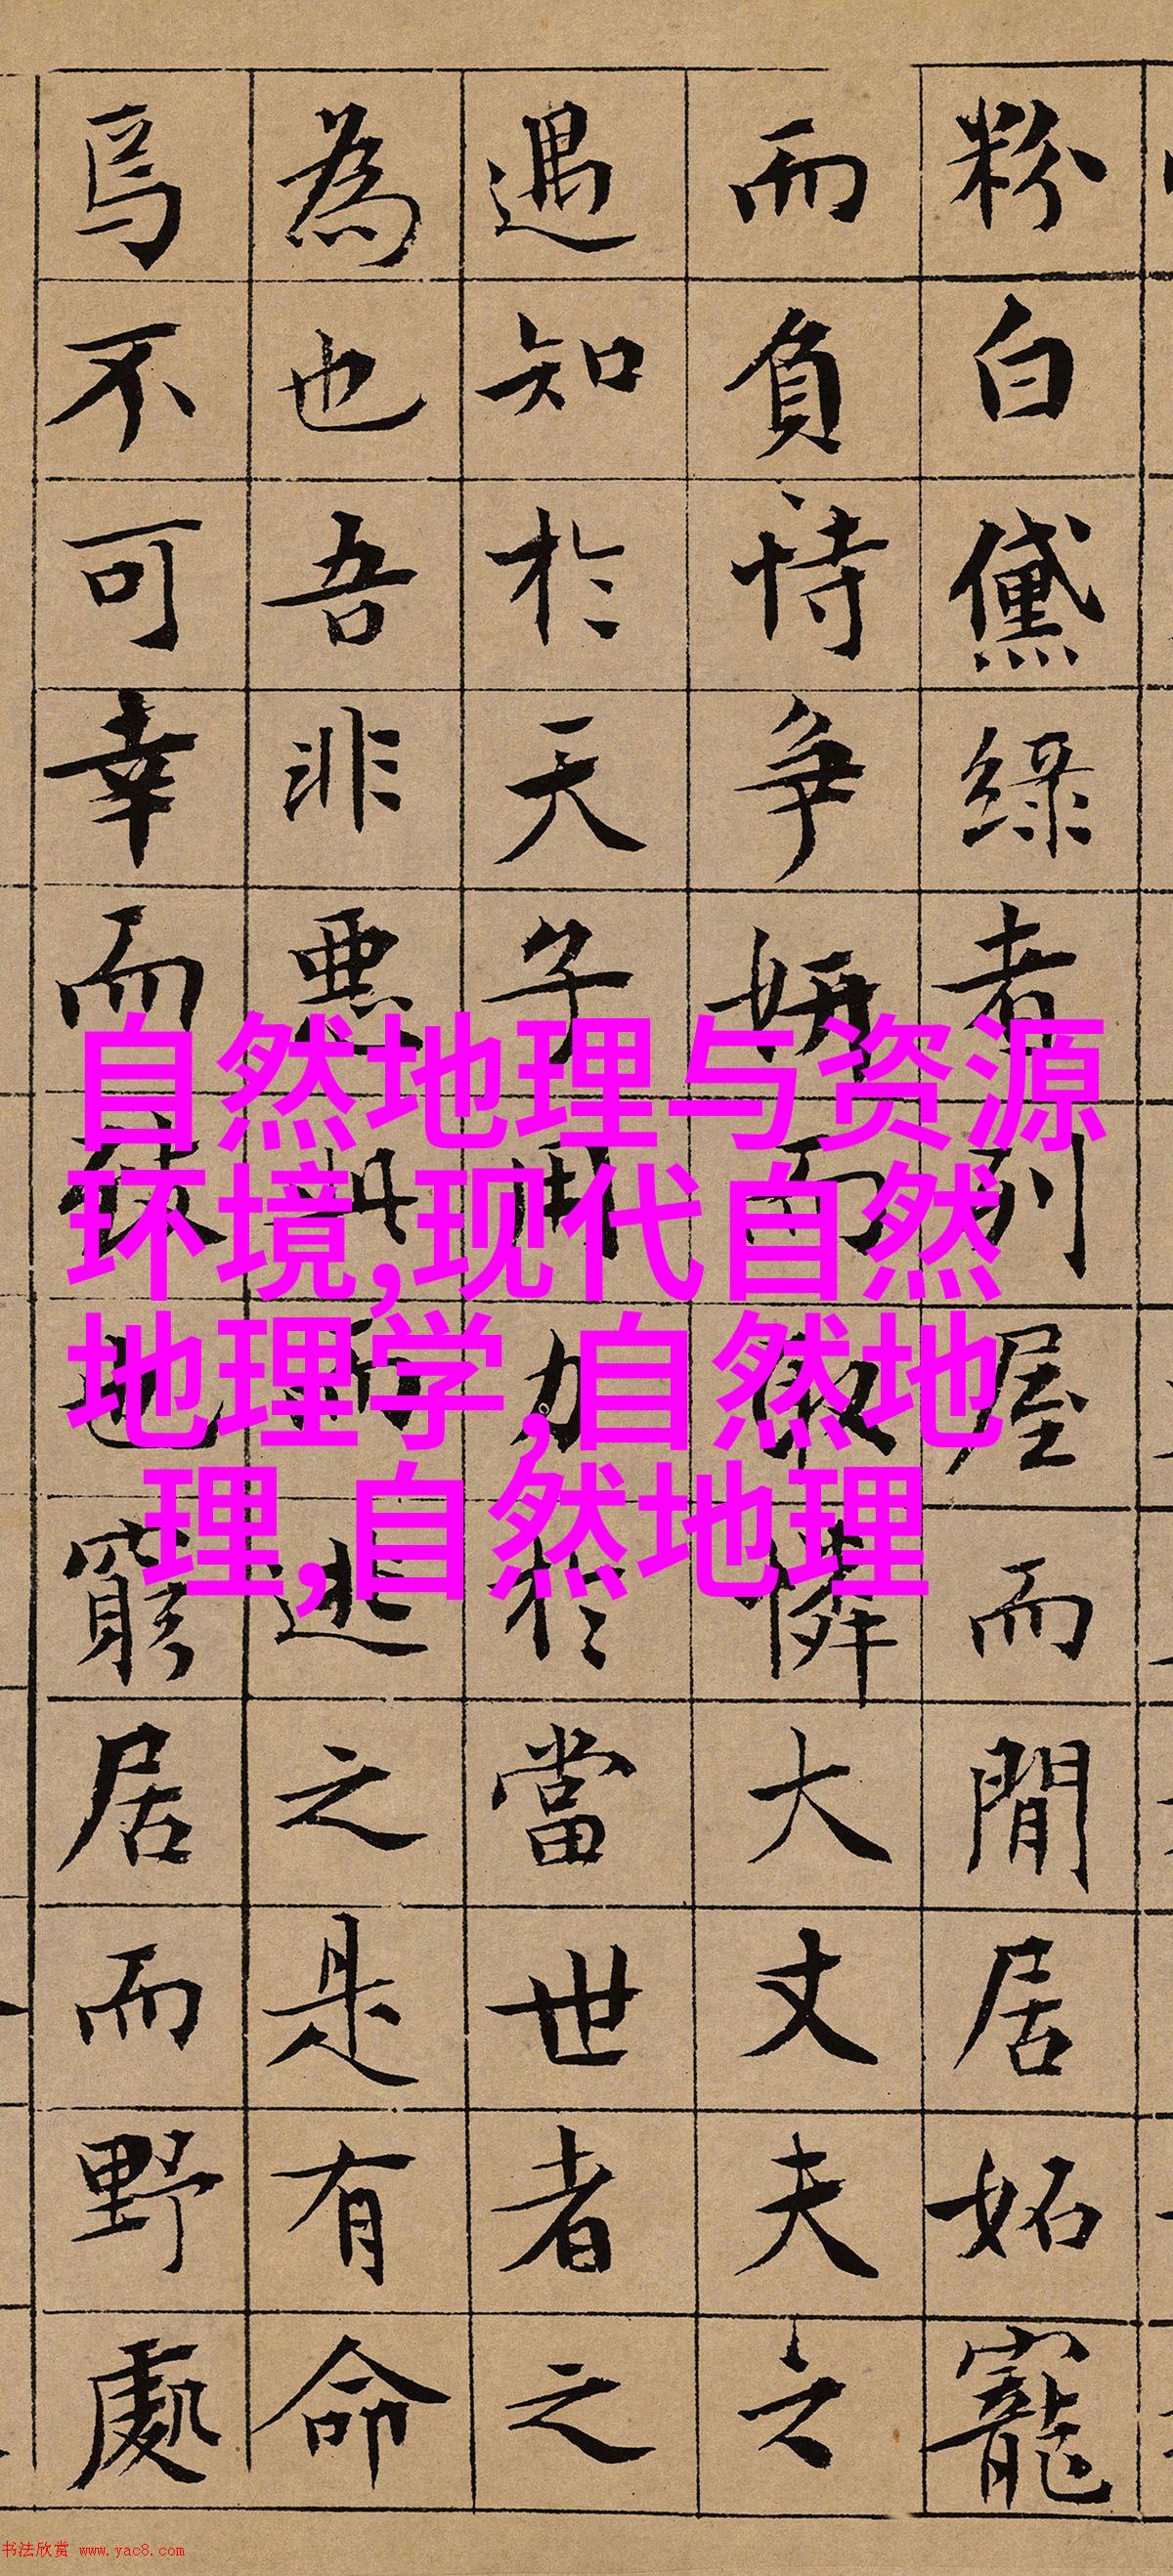 粉白黛綠者列屋而閒居妬寵
而負恃爭妍而取憐大丈夫之
遇知於天子用力於當世者之
為也吾非惡此而逃之是有命
焉不可幸而致也窮居而野處
自然地理与资源
环境,现代自然
地理学,自然地
理,自然地理
书法欣赏 www.yac8.com